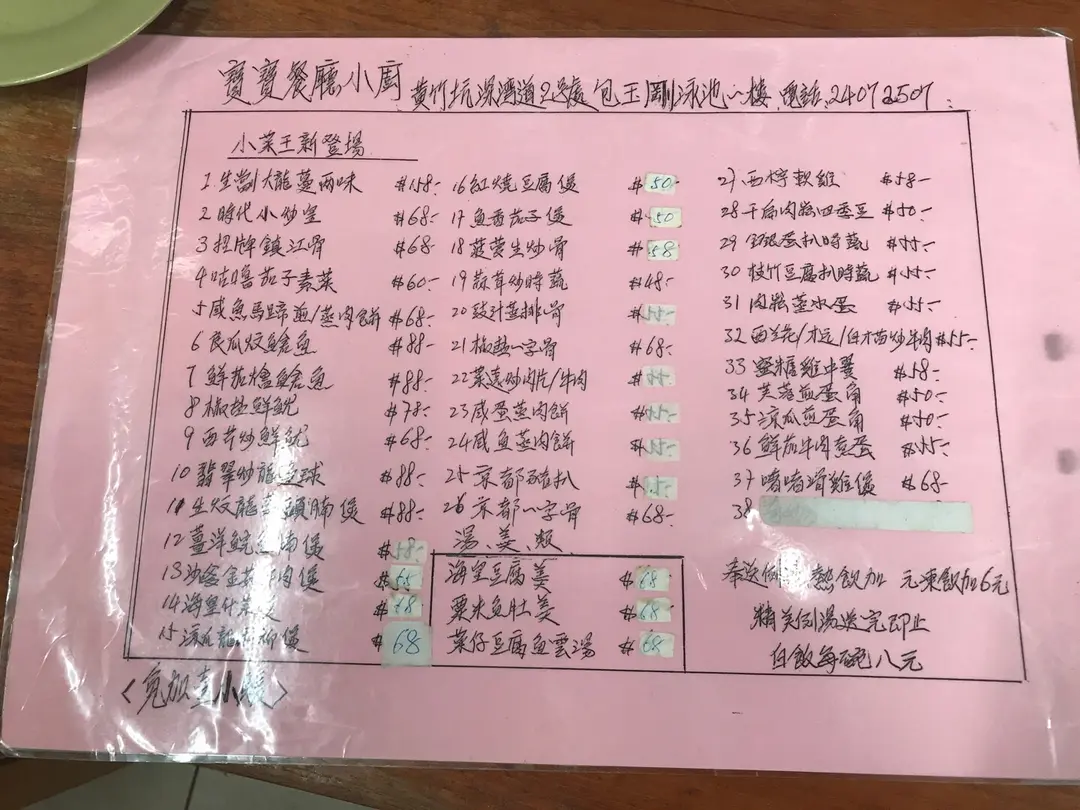 寶寶餐廳小廚 黃竹坑深灣道2號 包玉剛泳池一樓 電話:24072507
小菜王新登場
1 生劏大龍躉兩味 $158-
2 時代小炒皇 $68-
3 招牌鎮江骨 $68
4 咕嚕茄子素菜 $60-
5 咸魚馬蹄煎/蒸肉餅 $68-
6 良瓜炆鱼 $88-
7 鮮茄燴魚 $88-
8 椒鹽鮮魷 $78-
9 西芹炒鮮魷 $68-
10 翡翠炒龍球 $88-
11 生炆龍頭腩煲 $88-
12 薑洋腩煲 $58-
13 沙金肉煲 $68
14 海皇什菜 $68
15 涼瓜煲 $68
16 紅燒豆腐煲 $50-
17 魚香茄子煲 $50
18 菠蘿生炒骨 $58
19 蒜茸炒時蔬 $48-
20 豉汁蒸排骨 $55-
21 椒鹽一字骨 $68-
22 菜遠炒肉片/牛肉 $55-
23 咸蛋蒸肉餅 $55-
24 咸魚蒸肉餅 $55-
25 京都豬扒 $55-
26 京都一字骨 $68-
湯、羹、類
海皇豆腐羹 $68
粟米魚肚羹 $68-
菜仔豆腐魚雲湯 $68
27 西檸軟雞 $58-
28 干扁肉鬆四季豆 $50-
29 銀蛋扒時蔬 $55-
30 枝竹豆腐扒時蔬 $55-
31 肉鬆蒸水蛋 $55-
32 西蘭花/白木菇炒牛肉 $55-
33 蜜糖雞中翼 $58-
34 芙蓉煎蛋角 $50-
35 涼瓜煎蛋角 $50-
36 鮮茄牛肉煮蛋 $55-
37 啫啫滑雞煲 $68-
38
奉送例 熱飲加 元凍飲加6元
精美例湯送完即止
白飯每碗八元
<免加一小費>